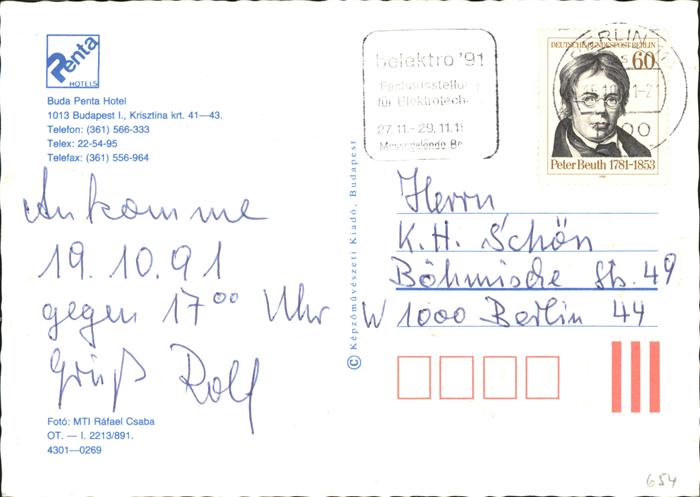 Penta
HOTELS
Buda Penta Hotel
1013 Budapest I., Krisztina krt. 41—43.
Telefon: (361) 566-333
Telex: 22-54-95
Telefax: (361) 556-964
Ankomme
19.10.91
gegen 17⁰⁰ Uhr
Gruß Rolf
Fotó: MTI Ráfael Csaba
OT. — I. 2213/891.
4301—0269
© Képzőművészeti Kiadó, Budapest
belektro '91
Fachausstellung
für Elektrotech
27.11.-29.11.19
Messegelände Be
BERLIN
DEUTSCHE BUNDESPOST BERLIN
60
Peter Beuth 1781-1853
Herrn
K.H. Schön
Böhmische Str. 49
W 1000 Berlin 44
654